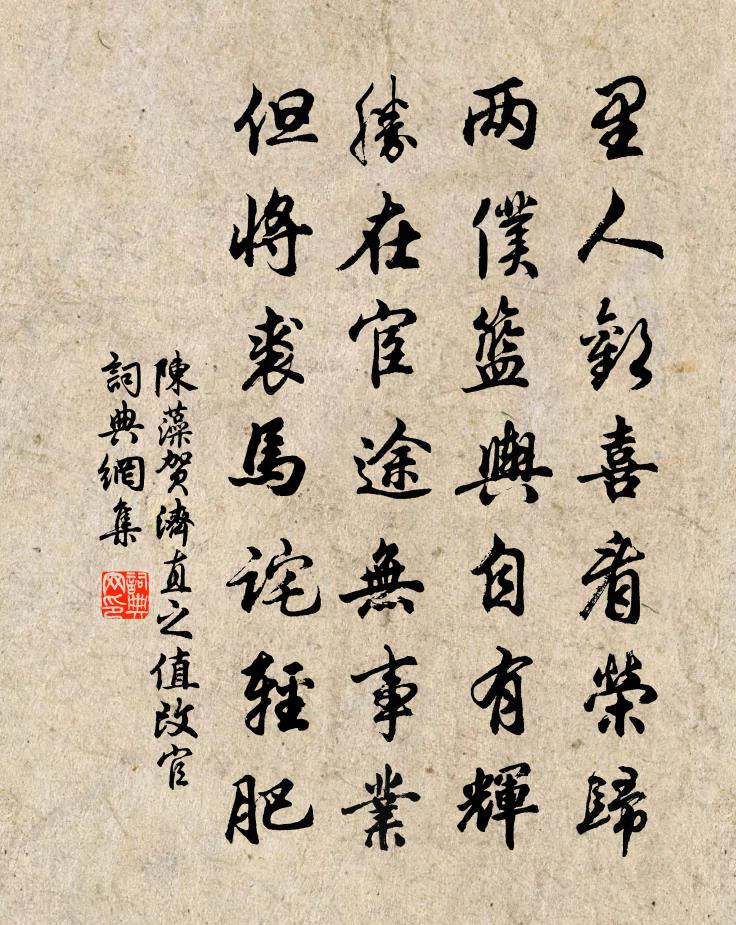 里人歡喜看榮歸
兩僕籃輿自有輝
勝在宦途無事業
但將裘馬詫輕肥
陳藻賀濟直之值改官
詞典網集
詞典网印